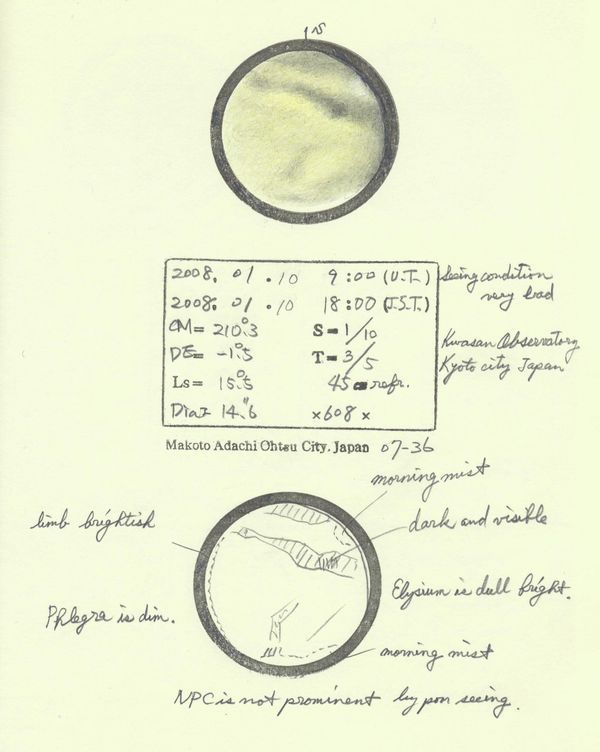 S
2008. 01 .10 9:00 (U.T.)
2008. 01 .10 18:00 (J.S.T.)
CM= 210°.3 S=1/10
DE= -1°.5 T=3/5
Ls= 15°.5 45 cm refr.
Dia= 14".6 ×608×
Seeing condition
very bad
Kwasan Observatory
Kyoto city Japan
Makoto Adachi Ohtsu City, Japan 07-36
morning mist
limb brightish
dark and visible
Elysium is dull bright.
Phlegra is dim.
morning mist
NPC is not prominent by poor seeing.